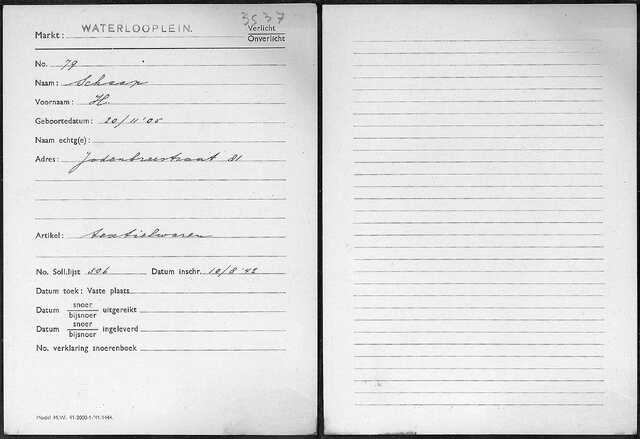 3537
Markt: WATERLOOPLEIN.
Verlicht
Onverlicht
No. 79
Naam: Schaap
Voornaam: H.
Geboortedatum: 20/11 '05
Naam echtg(e):
Adres: Jodenbreestraat 81
Artikel: textielwaren
No. Soll.lijst 206 Datum inschr. 10/8 '42
Datum toek: Vaste plaats
Datum snoer
bijsnoer uitgereikt
Datum snoer
bijsnoer ingeleverd
No. verklaring snoerenboek
Model M.W.